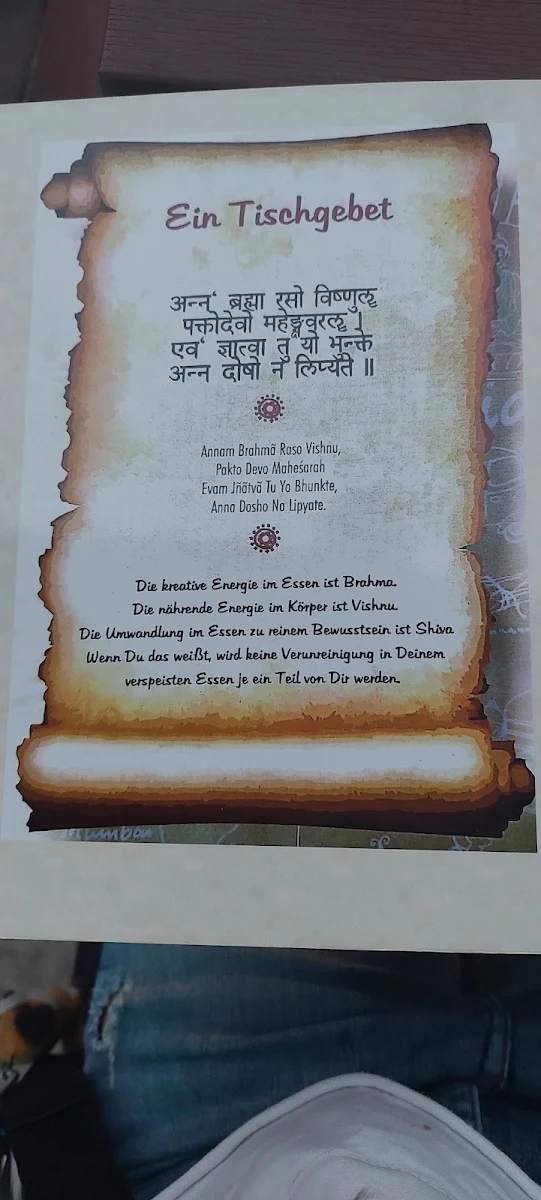 Ein Tischgebet
अन्न‘ ब्रह्मा रसो विष्णुलृ
पक्तोदेवो महेङ्कवरलृ ।
एव‘ ज्ञात्वा तु यो भुन्क्ते
अन्न दोषो न लिप्यते ॥
Annam Brahmã Raso Vishnu,
Pakto Devo Maheśarah
Evam Jñãtvã Tu Yo Bhunkte,
Anna Dosho Na Lipyate.
Die kreative Energie im Essen ist Brahma.
Die nährende Energie im Körper ist Vishnu.
Die Umwandlung im Essen zu reinem Bewusstsein ist Shiva.
Wenn Du das weißt, wird keine Verunreinigung in Deinem
verspeisten Essen je ein Teil von Dir werden.
Mumbai